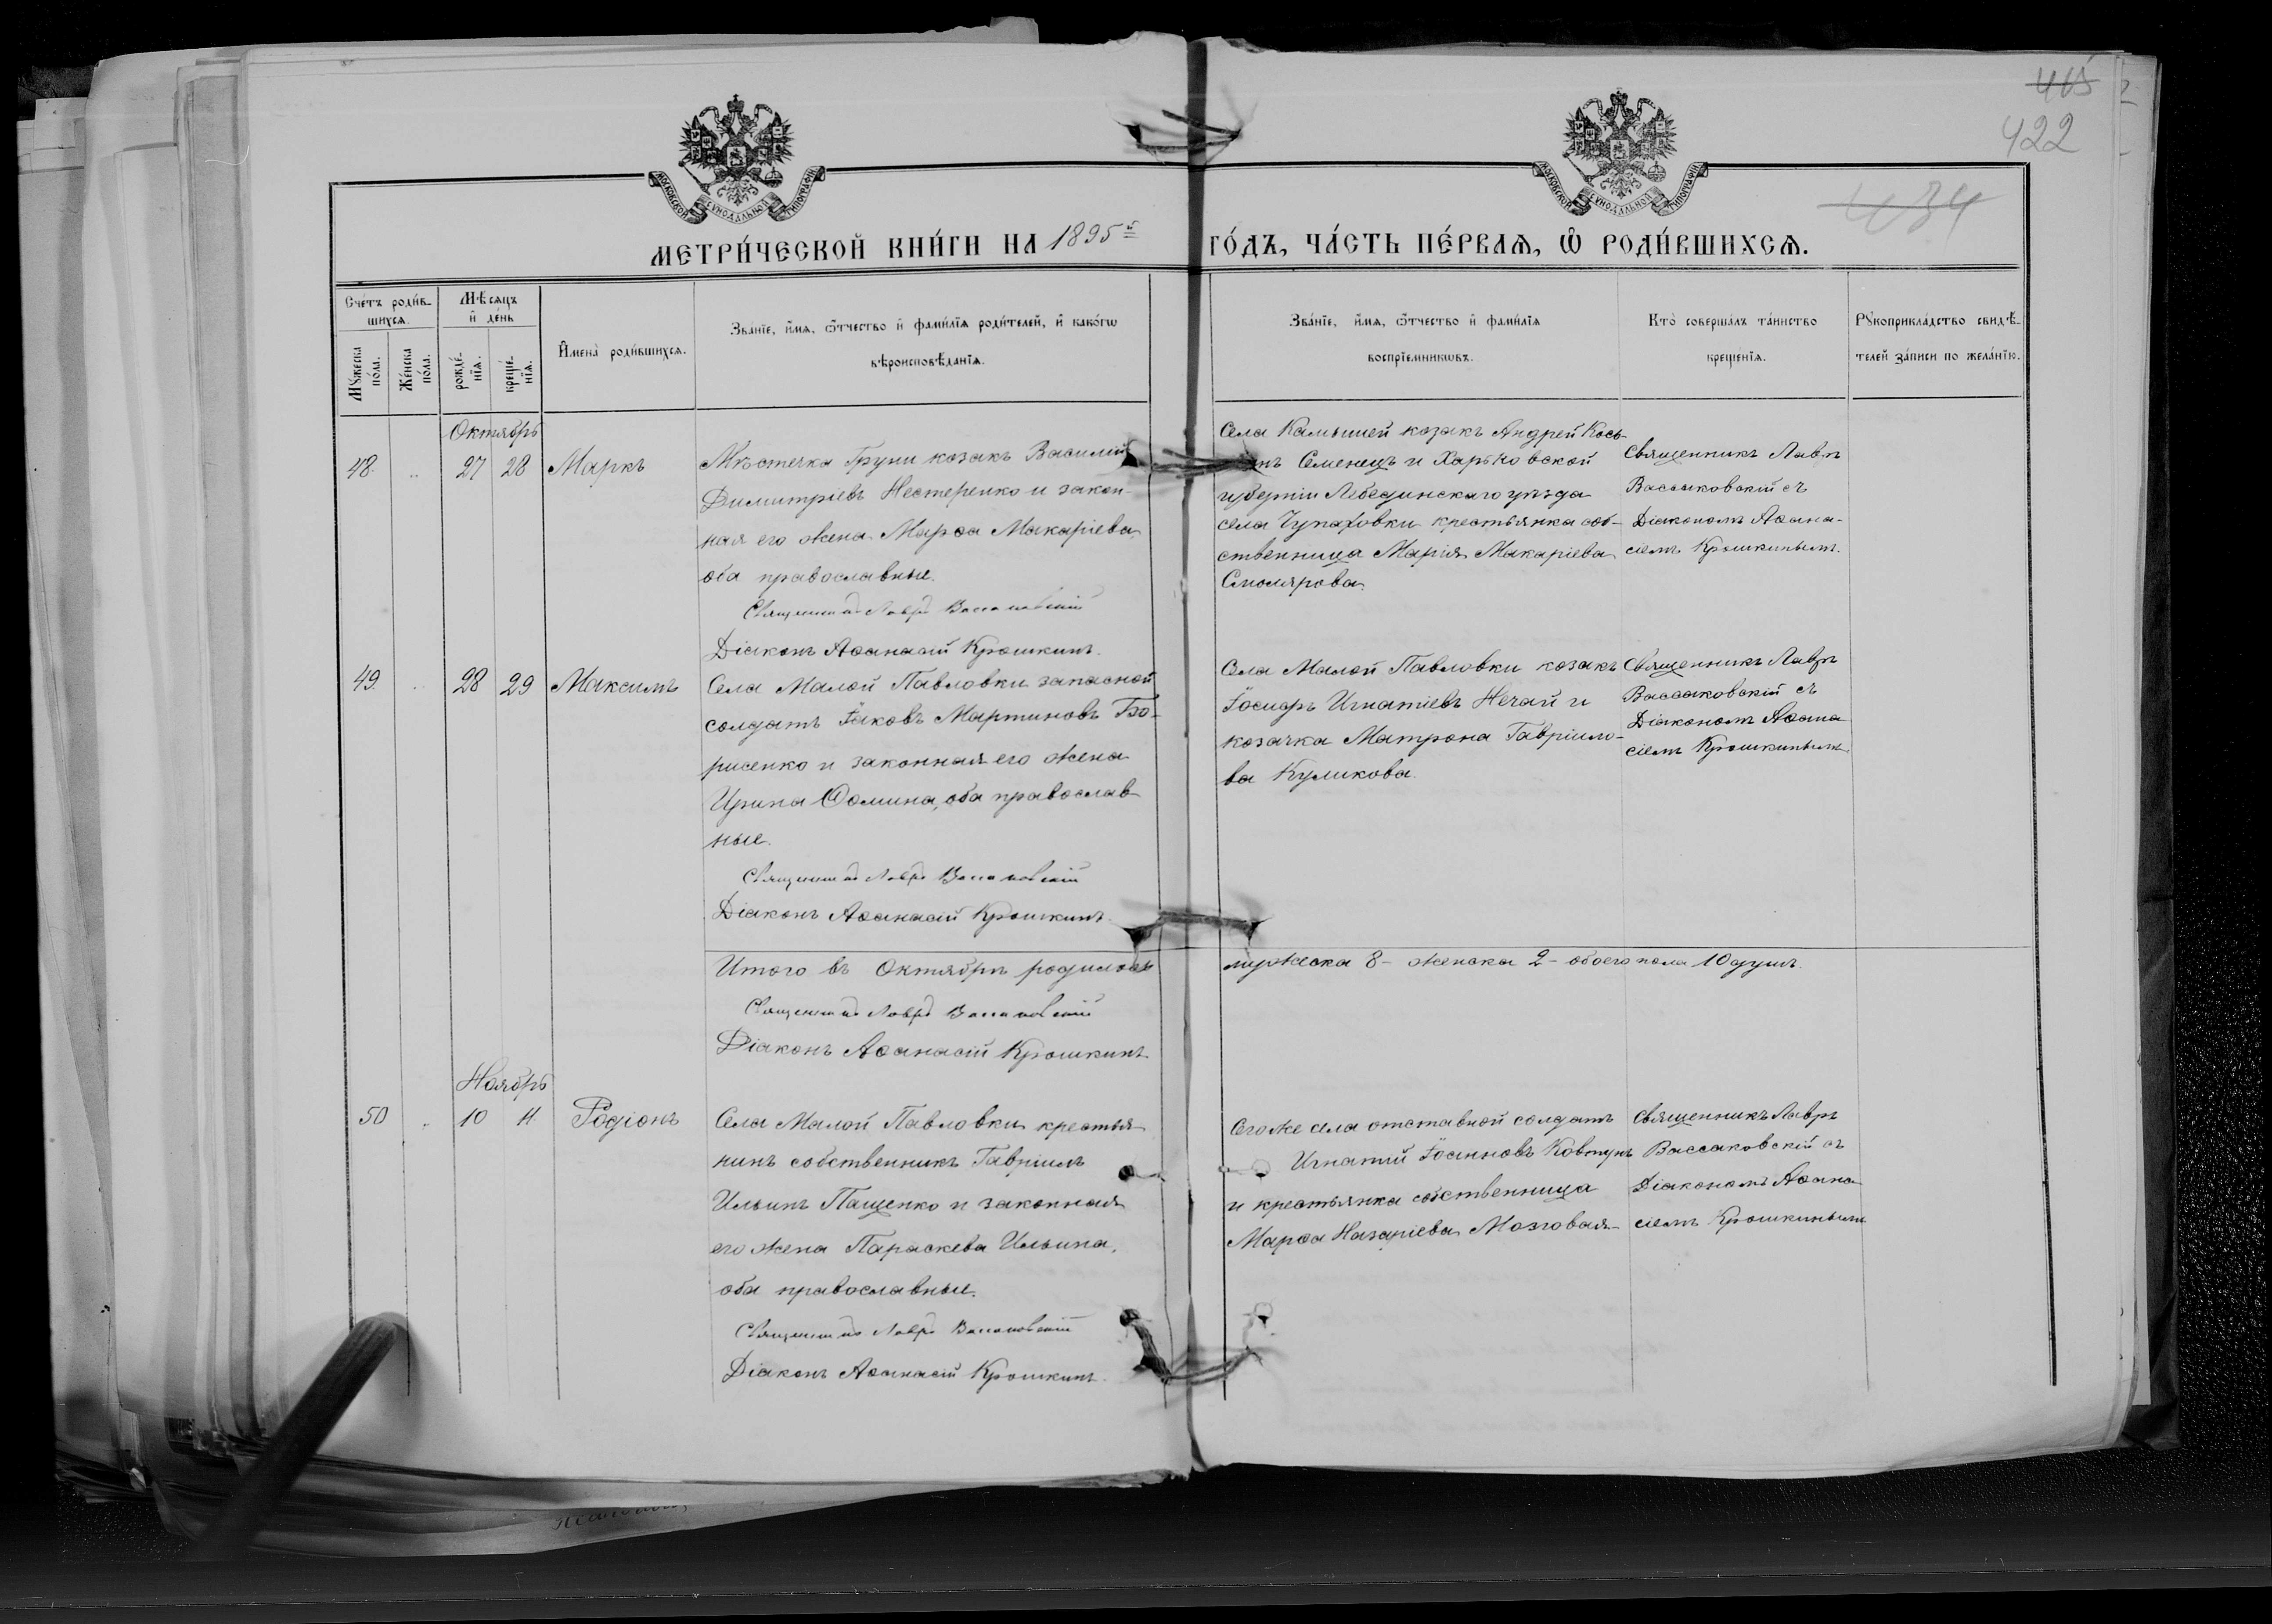 415
422
434
МОСКОВСКОЙ СѴНОДАЛЬНОЙ ТИПОГРАФІИ
МОСКОВСКОЙ СѴНОДАЛЬНОЙ ТИПОГРАФІИ
МЕТРИ́ЧЕСКОЙ КНИ́ГИ НА 1895й ГО́ДЪ, ЧА́СТЬ ПЕ́РВАѦ, Ѽ РОДИ́ВШИХСѦ.
Сче́тъ роди́в-
шихсѧ.
Мѣ́сѧцъ
и҆ де́нь
Мꙋ́жеска по́ла.
Же́нска по́ла.
рожде́-нїѧ.
креще́-нїѧ.
И҆мена̀ роди́вшихсѧ.
Зва́нїе, и҆́мѧ, ѻ҆́тчество и҆ фами́лїѧ роди́телей, и҆ како́гѡ
вѣроисповѣ́данїѧ.
Зва́нїе, и҆́мѧ, ѻ҆́тчество и҆ фами́лїѧ
воспрїе́мникѡвъ.
Кто̀ соверша́лъ та́инство
креще́нїѧ.
Рꙋкоприкла́дство свидѣ́-
телей за́писи по жела́нїю.
Октябрь
48. .. 27 28 Маркъ
Мѣстечка Груни козакъ Василій
Димитріевъ Нестеренко и закон-
ная его жена Марѳа Макаріева,
оба православные.
Священникъ Лавръ Вассаковскій
Діаконъ Аѳанасій Крошкинъ.
Села Камышей козакъ Андрей Кось-
Семенецъ и Харьковской
губерніи Лебединскаго уѣзда
села Чупаховки крестьянка соб-
ственница Марія Макаріева
Смолярова.
Священникъ Лавръ
Вассаковскій съ
Діакономъ Аѳана-
сіемъ Крошкинымъ.
49. .. 28 29 Максимъ
Села Малой Павловки запасной
солдатъ Іаковъ Мартиновъ Бо-
рисенко и законная его жена
Ирина Ѳомина, оба православ
ные.
Священникъ Лавръ Вассаковскій
Діаконъ Аѳанасій Крошкинъ.
Села Малой Павловки козакъ
Іосифъ Игнатіевъ Нечай и
козачка Матрона Гавріило-
ва Куликова.
Священникъ Лавръ
Вассаковскій съ
Діакономъ Аѳана
сіемъ Крошкинымъ
Итого въ Октябрѣ родилось мужеска 8 - женска 2 - обоего пола 10 душъ.
Священникъ Лавръ Вассаковскій
Діаконъ Аѳанасій Крошкинъ
Ноябрь
50 .. 10 11 Родіонъ
Села Малой Павловки крестья-
нинъ собственникъ Гавріилъ
Ильинъ Пащенко и законная
его жена Параскева Ильина,
оба православные.
Священникъ Лавръ Вассаковскій
Діаконъ Аѳанасій Крошкинъ.
Того же села отставной солдатъ
Игнатій Іоанновъ Ковтунъ
и крестьянка собственница
Марѳа Назаріева Мозговая
Священникъ Лавръ
Вассаковскій съ
Діакономъ Аѳана
сіемъ Крошкинымъ